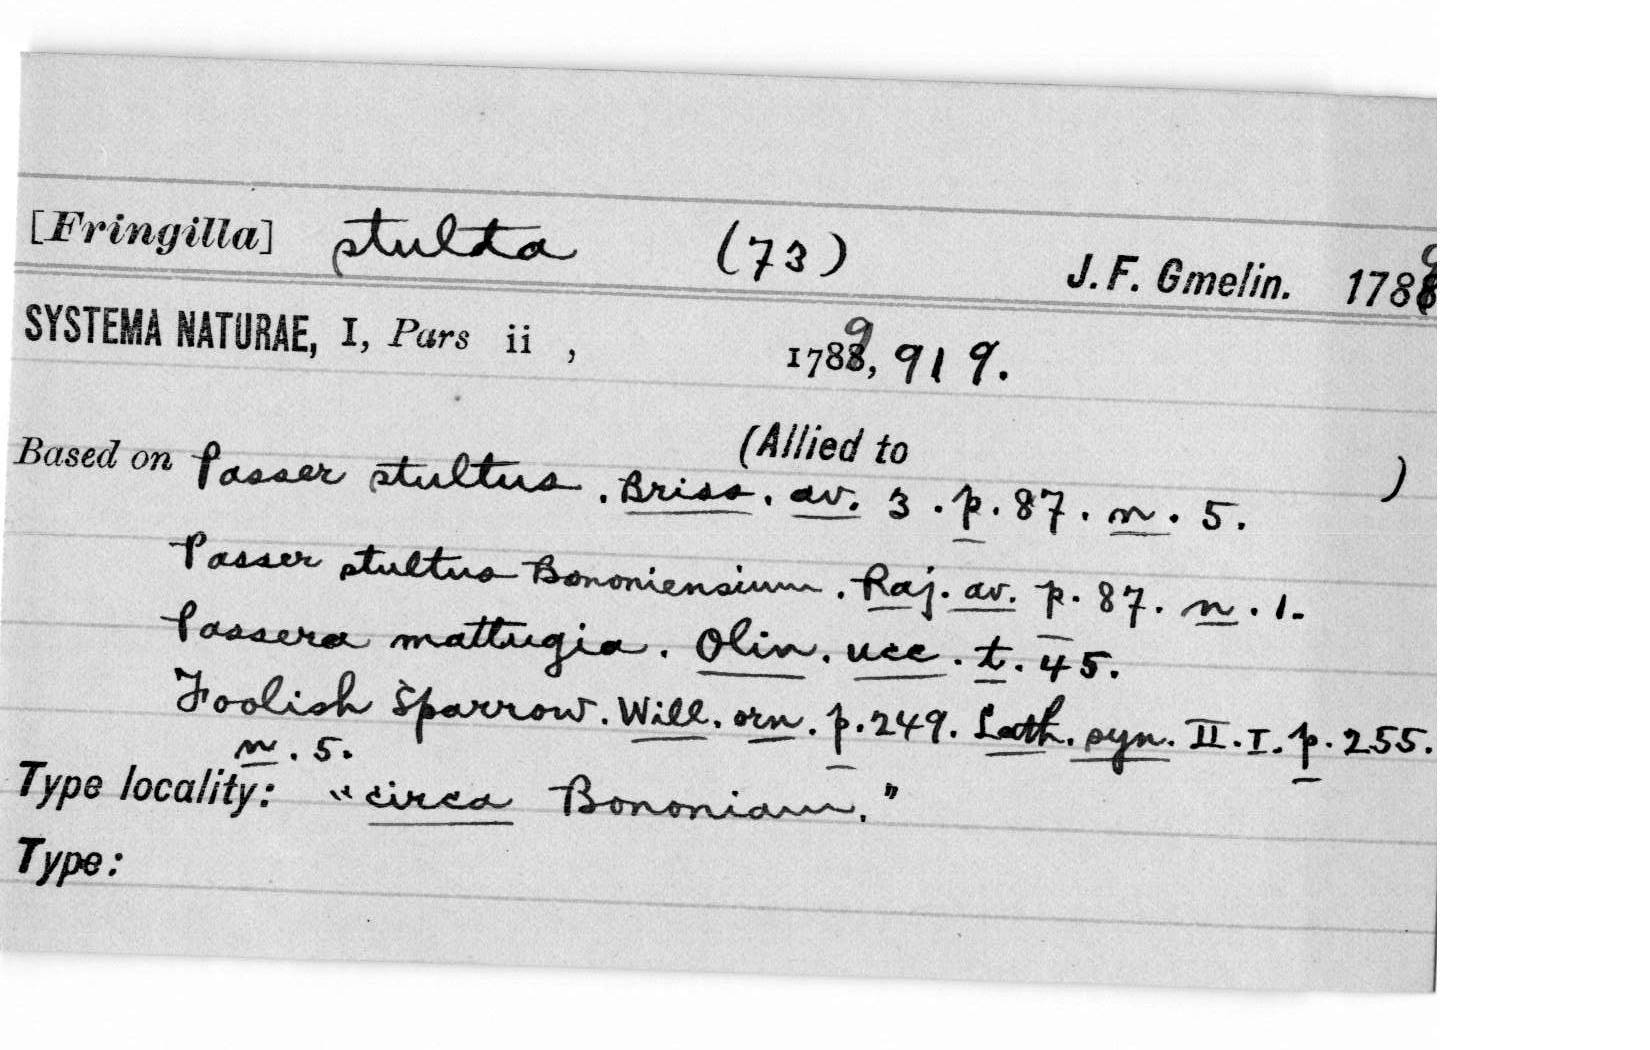 [Fringilla] stulta (73) J. F. Gmelin. 1789
SYSTEMA NATURAE, I, Pars ii , 1789, 919.
(Allied to )
Based on Passer stultus. Briss. av. 3. p. 87. n. 5.
Passer stultus Bononiensium. Raj. av. p. 87. n. 1.
Passera mattugia. Olin. ucc. t. 45.
Foolish Sparrow. Will. orn. p. 249. Lath. syn. II. I. p. 255.
n. 5.
Type locality: "circa Bononiam."
Type: